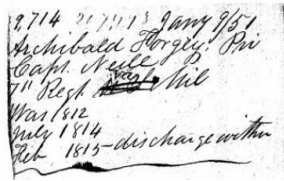 2,714 Jany 9/51
Archibald Forgey. Pri
Capt. Neill
7" Regt Va Mil
War 1812
July 1814
Feb 1815 - discharge within